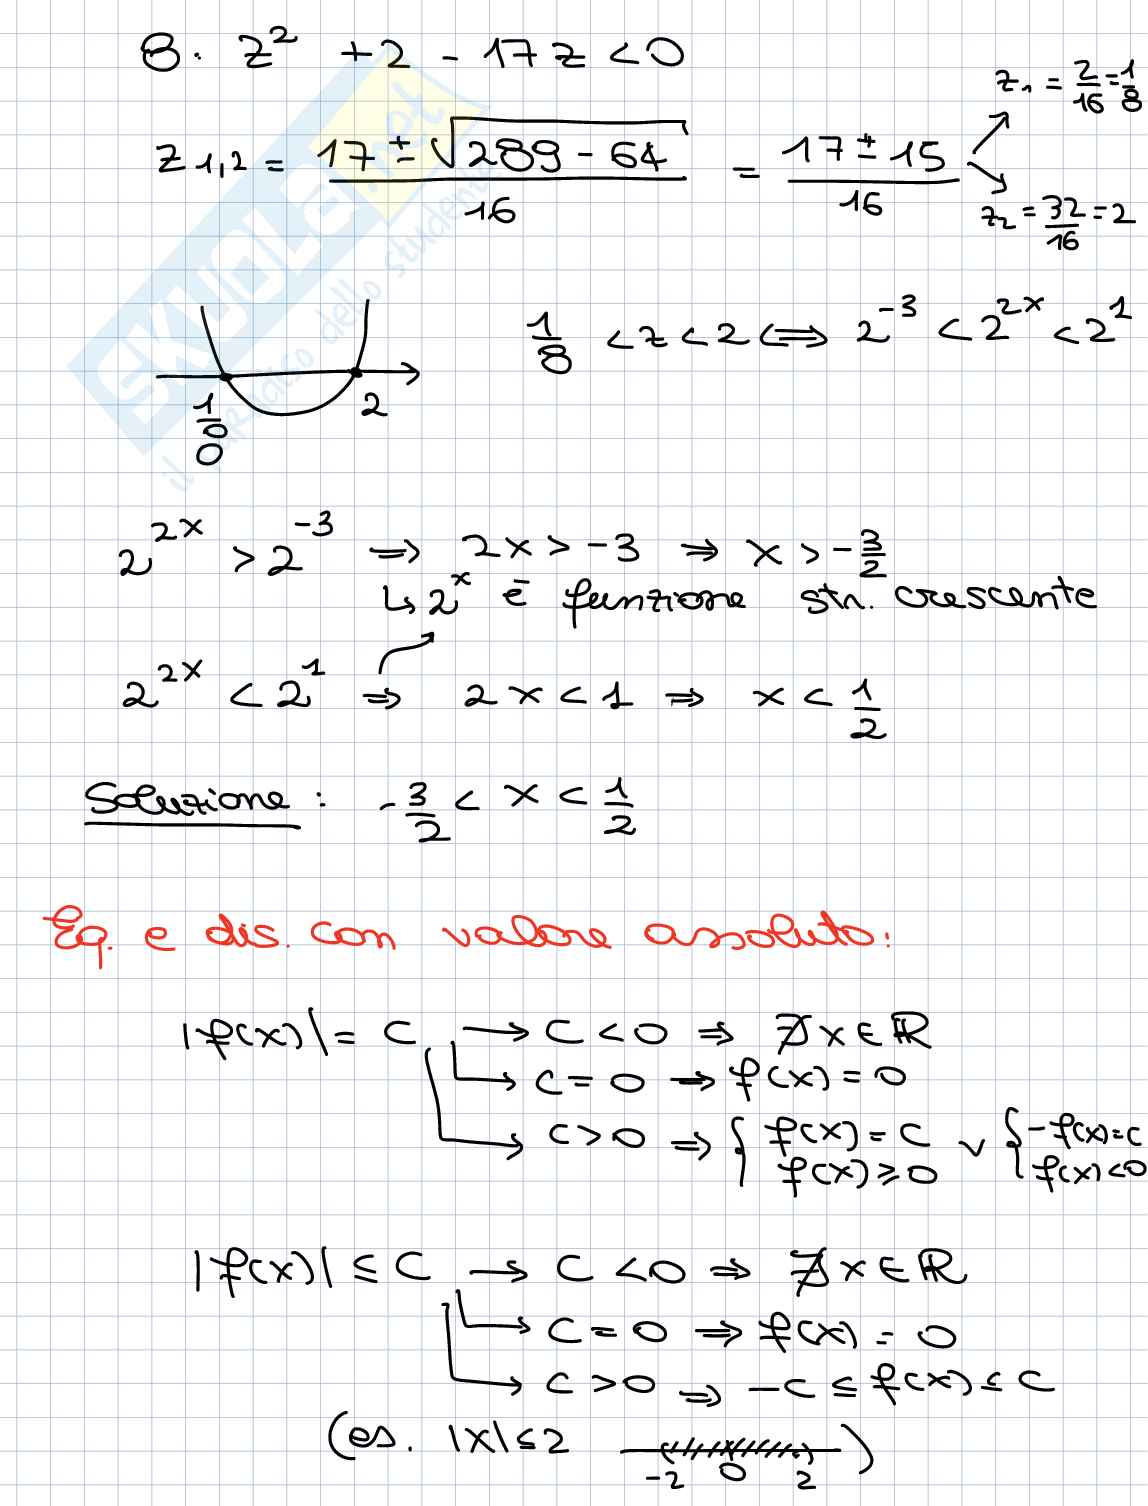 8· z² + 2 - 17z < 0
z₁,₂ = (17 ± √(289 - 64))/16 = (17 ± 15)/16
z₁ = 2/16 = 1/8
z₂ = 32/16 = 2
1/8 < z < 2 ⟺ 2⁻³ < 2²ˣ < 2¹
1/8 2
2²ˣ > 2⁻³ ⇒ 2x > -3 ⇒ x > -3/2
↳ 2ˣ è funzione str. crescente
2²ˣ < 2¹ ⇒ 2x < 1 ⇒ x < 1/2
Soluzione : -3/2 < x < 1/2
Eq. e dis. con valore assoluto:
|f(x)| = C → C < 0 ⇒ ∄ x ∈ ℝ
→ C = 0 ⇒ f(x) = 0
→ C > 0 ⇒ { f(x) = C ∨ { -f(x) = C
f(x) ≥ 0 f(x) < 0
|f(x)| ≤ C → C < 0 ⇒ ∄ x ∈ ℝ
→ C = 0 ⇒ f(x) = 0
→ C > 0 ⇒ -C ≤ f(x) ≤ C
(es. |x| ≤ 2 )
-2 0 2
SKUOLA.net
il paradiso dello studente